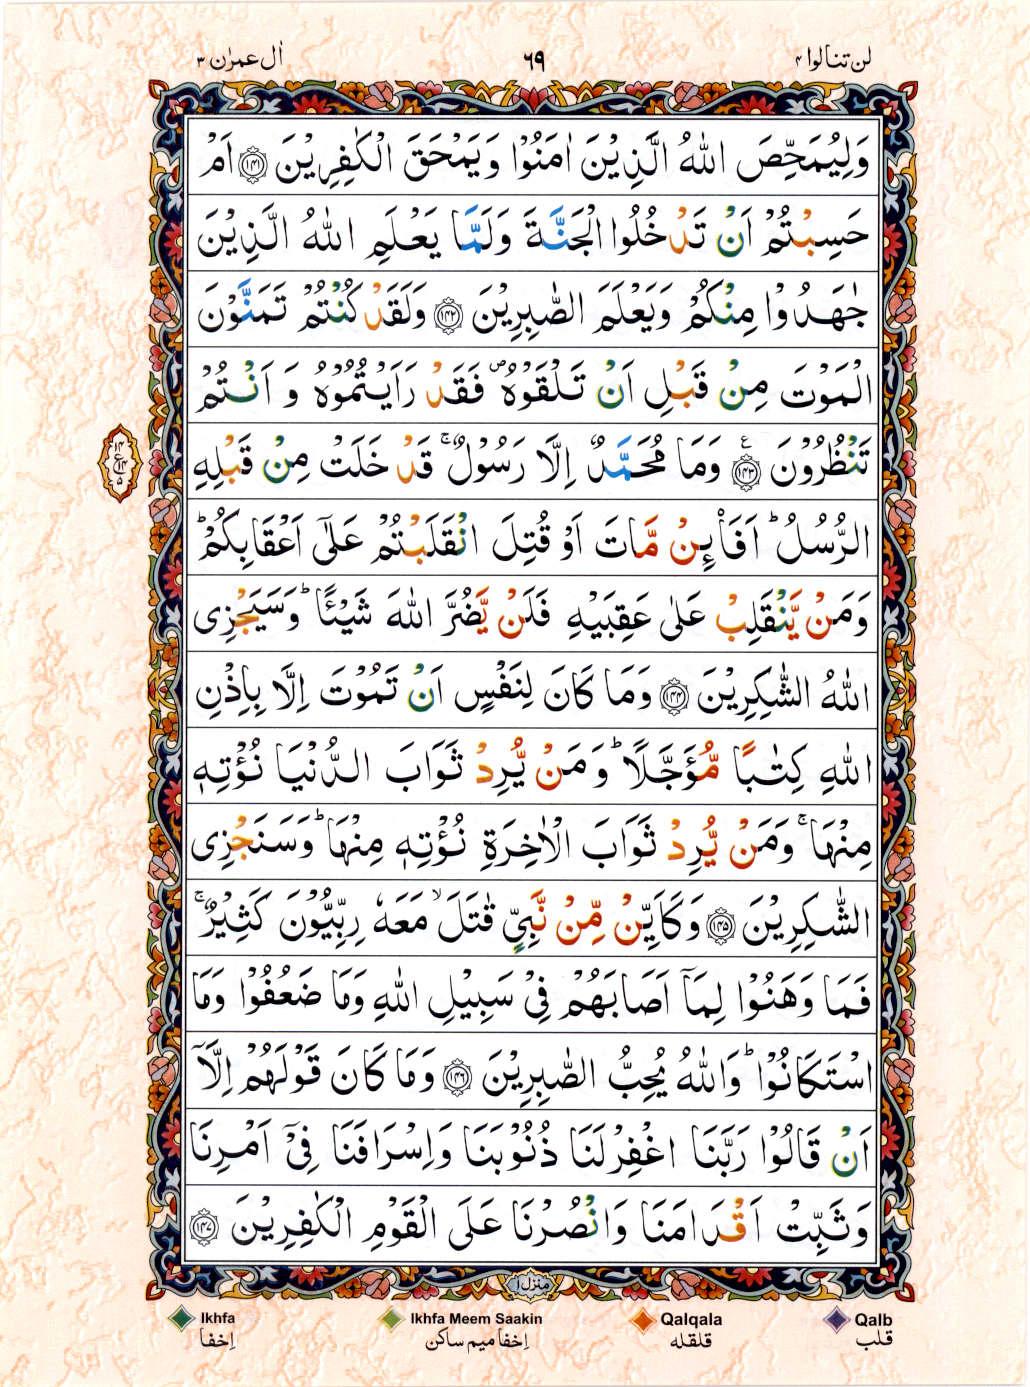 لن تنالوا ۴
۶۹
اٰل عمرٰن ۳
وَلِيُمَحِّصَ اللّٰهُ الَّذِيْنَ اٰمَنُوْا وَيَمْحَقَ الْكٰفِرِيْنَ ﴿۱۴۱﴾ اَمْ
حَسِبْتُمْ اَنْ تَدْخُلُوا الْجَنَّةَ وَلَمَّا يَعْلَمِ اللّٰهُ الَّذِيْنَ
جٰهَدُوْا مِنْكُمْ وَيَعْلَمَ الصّٰبِرِيْنَ ﴿۱۴۲﴾ وَلَقَدْ كُنْتُمْ تَمَنَّوْنَ
الْمَوْتَ مِنْ قَبْلِ اَنْ تَلْقَوْهُ ۪ فَقَدْ رَاَيْتُمُوْهُ وَ اَنْتُمْ
تَنْظُرُوْنَ ﴿۱۴۳﴾ ع وَمَا مُحَمَّدٌ اِلَّا رَسُوْلٌ ۚ قَدْ خَلَتْ مِنْ قَبْلِهِ
۱۴ ع ۱۴ ۵
الرُّسُلُ ؕ اَفَا۠ئِنْ مَّاتَ اَوْ قُتِلَ انْقَلَبْتُمْ عَلٰٓى اَعْقَابِكُمْ ؕ
وَمَنْ يَّنْقَلِبْ عَلٰى عَقِبَيْهِ فَلَنْ يَّضُرَّ اللّٰهَ شَيْـًٔا ؕ وَسَيَجْزِى
اللّٰهُ الشّٰكِرِيْنَ ﴿۱۴۴﴾ وَمَا كَانَ لِنَفْسٍ اَنْ تَمُوْتَ اِلَّا بِاِذْنِ
اللّٰهِ كِتٰبًا مُّؤَجَّلًا ؕ وَمَنْ يُّرِدْ ثَوَابَ الدُّنْيَا نُؤْتِهٖ
مِنْهَا ۚ وَمَنْ يُّرِدْ ثَوَابَ الْاٰخِرَةِ نُؤْتِهٖ مِنْهَا ؕ وَسَنَجْزِى
الشّٰكِرِيْنَ ﴿۱۴۵﴾ وَكَاَيِّنْ مِّنْ نَّبِيٍّ قٰتَلَ ۙ مَعَهٗ رِبِّيُّوْنَ كَثِيْرٌ ۚ
فَمَا وَهَنُوْا لِمَاۤ اَصَابَهُمْ فِىْ سَبِيْلِ اللّٰهِ وَمَا ضَعُفُوْا وَمَا
اسْتَكَانُوْا ؕ وَاللّٰهُ يُحِبُّ الصّٰبِرِيْنَ ﴿۱۴۶﴾ وَمَا كَانَ قَوْلَهُمْ اِلَّاۤ
اَنْ قَالُوْا رَبَّنَا اغْفِرْلَنَا ذُنُوْبَنَا وَاِسْرَافَنَا فِىْۤ اَمْرِنَا
وَثَبِّتْ اَقْدَامَنَا وَانْصُرْنَا عَلَى الْقَوْمِ الْكٰفِرِيْنَ ﴿۱۴۷﴾
منزل ۱
Ikhfa
اِخفا
Ikhfa Meem Saakin
اِخفا میم ساکن
Qalqala
قلقله
Qalb
قلب